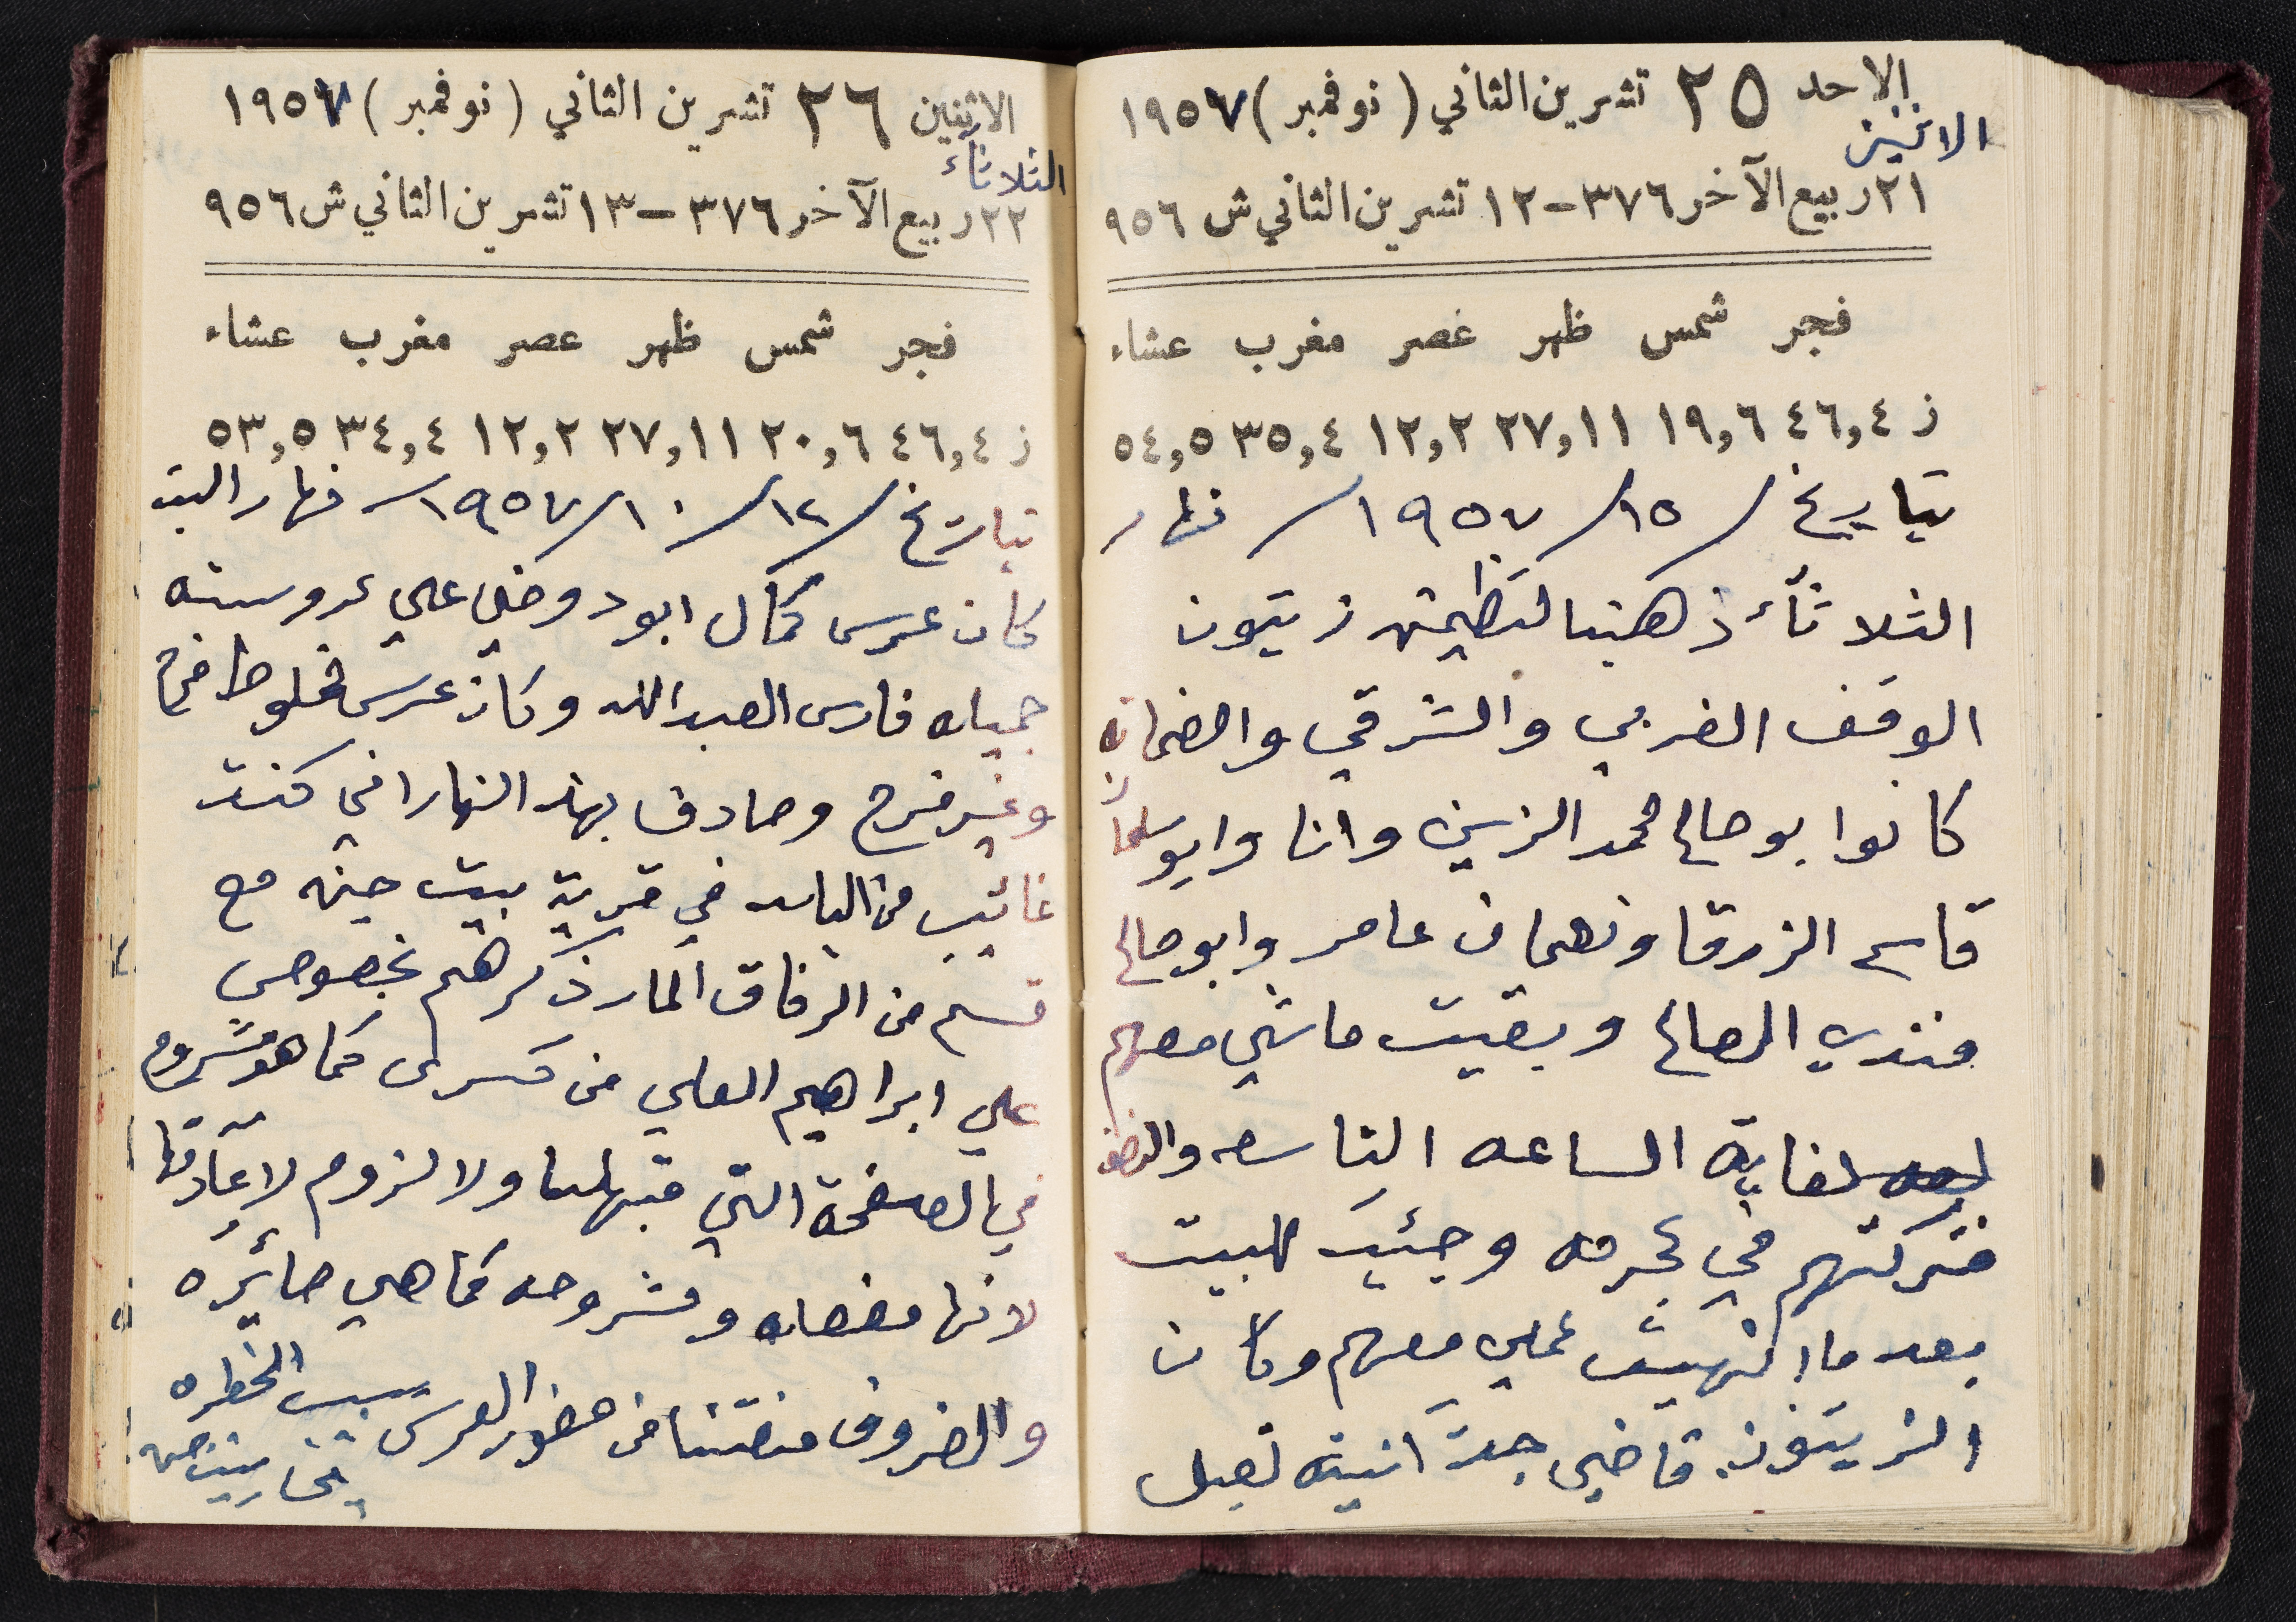 الاحد ٢٥ تشرين الثاني (نوفمبر) ١٩٥٧
الاثنين
٢١ ربيع الآخر ٣٧٦ - ١٢ تشرين الثاني ش ٩٥٦
فجر شمس ظهر عصر مغرب عشاء
ز ٤٦,٤ ١٩,٦ ٢٧,١١ ١٢,٢ ٣٥,٤ ٥٤,٥
بتاريخ / ١٥/ ١٩٥٧/ نهار
الثلاثأ ذهبنا زيتون
الوقف الغربي والشرقي والضمانه
كانوا بو صالح محمد الزين وانا وابو
قاسم الزرقا ونعمان عامر وابو صالح
فندي الصالح وبقيت ماشي معهم
لغاية الساعه التاسعه والنصف
فتركتهم في وجئيت للبيت
بعد ما انهيت عملي معهم وكان
الزيتون قاضي جداً
الاثنين ٢٦ تشرين الثاني (نوفمبر) ١٩٥٧
الثلاثأ
٢٢ ربيع الآخر ٣٧٦ - ١٣ تشرين الثاني ش ٩٥٦
فجر شمس ظهر عصر مغرب عشاء
ز ٤٦,٤ ٢٠,٦ ٢٧,١١ ١٢,٢ ٣٤,٤ ٥٣,٥
بتاريخ /١٢/ ١٠/ ١٩٥٧/ نهار السبت
كان عرس كمال ابو دوخي علي عروسته
جميله فارس العبدالله وكان عرس مخلوط فرح
وغير فرح وصادف بهذ النهار اني كنت
غائيب من البلد في قرية بيت جنه مع
قسم من الرفاق المار ذكرهم بخصوص
علي ابراهيم العلي من كسرى كما هو مشروح
في الصفحة التي قبلها ولا لزوم لاعادتها
لانها مفصله ومشروحه كما هي صائره
والضروف منعتنا من حضور العرس بسبب الخطره